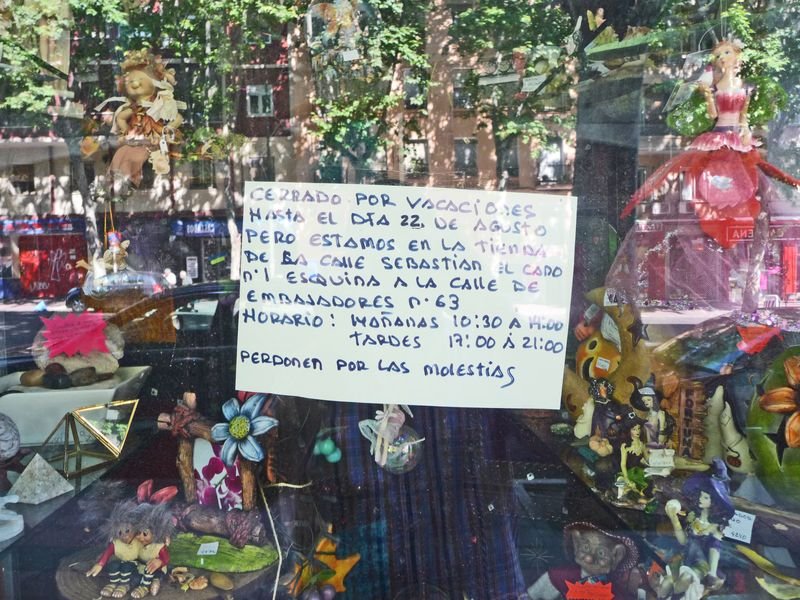 CERRADO POR VACACIONES
HASTA EL DÍA 22, DE AGUSTO
PERO ESTAMOS EN LA TIENDA
DE LA CALLE SEBASTIAN EL CANO
nº1 ESQUINA A LA CALLE DE
EMBAJADORES Nº 63
HORARIO: MAÑANAS 10:30 Á 14:00
TARDES 17:00 Á 21:00
PERDONEN POR LAS MOLESTIAS